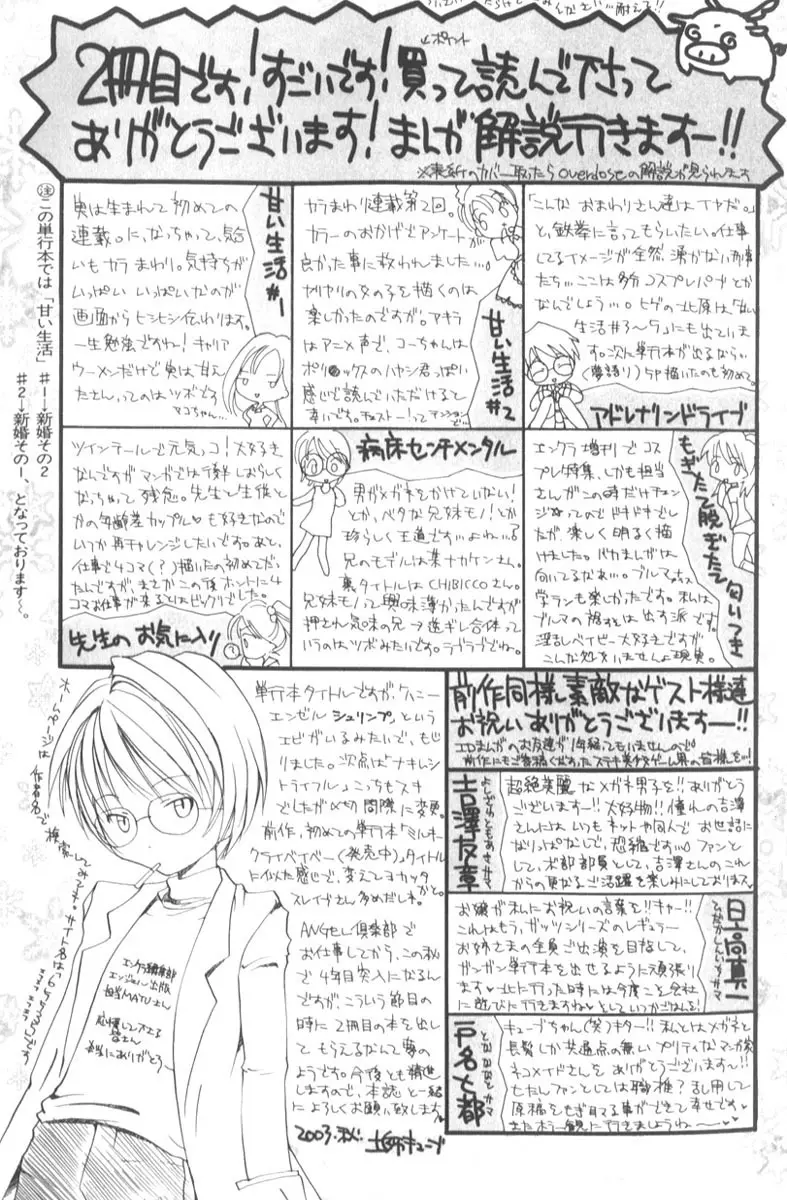 2冊目です!すごいです!買って読んで下さって
ありがとうございます!まんが解説行きますー!!
※表紙のカバー取ったらoverdoseの解説が見られます
㊟この単行本では「甘い生活」
#1→新婚その2
#2→新婚その1、となっております〜。
甘い生活#1
実は生まれて初めての
連載。に、なっちゃって、気合
いもカラまわり。気持ちが
いっぱいいっぱいなのが
画面からヒシヒシ伝わります。
一生勉強ですね!キャリア
ウーメンだけで実は甘えん
たさんってのはツボです
マコちゃん…
甘い生活#2
カラまわり連載第2回。
カラーのおかげでアンケートが
良かった事に救われました…。
ヤリヤリの女の子を描くのは
楽しかったのですが。アキラ
はアニメ声で、コーちゃんは
感じで読んでいただけると
幸いです。
アドレナリンドライブ
「こんなおまわりさん達はイヤだ。」
と、鉄拳に言ってもらいたい。仕事
してるイメージが全然、湧かない刑事
たち…ここは多分コスプレパブとか
なんでしょう…。ヒゲの北原は「甘い
生活#3〜5」にも出ていま
す。次に単行本が出るなら…
(夢語り)SP描いたのも初めて。
先生のお気に入り
ツインテールで元気っコ!大好き
なんですがマンガではしおらしく
なっちゃって残念。先生と生徒と
かの年齢差カップル♥も好きなので
いつか再チャレンジしたいです。あと、
仕事で4コマ(?)描いたの初めてだっ
たんですが、まさかこの後ホントに4
コマお仕事が来るとはビックリでした。
病床センチメンタル
男がメガネをかけていない!
とか、ベタな兄妹モノ!とか
珍らしく王道です…よね…?
兄のモデルは某ナカケンさん。
裏タイトルはCHIBICCOさん。
兄妹モノって興味薄かったんですが
押され気味の兄→逆ギレ合体って
いうのはツボみたいです。ラブラブでね。
もぎたて脱ぎたて匂いつき
エンクラ増刊でコス
プレ特集、しかも担当
さんがこの時だけチェン
ジってのでドキドキでし
たが、楽しく明るく描
けました。バカまんがは
向いてるなぁ…。ブルマもさぁ、
学ランも楽しかったです。私は
ブルマの裾は出す派です。
淫乱ベイビー大好きですが
こんな処女いませんよ現実。
ホームページは作者名で検索してみて下さい。
エンクラ編集部
エンジェル出版
担当MAYUさん
応援して下さる皆さん
本当にありがとう
単行本タイトルですが、ケハニー
エンゼルシュリンプ、という
エビがいるみたいで、もじ
りました。次点は「ナキムシ
トライフル」こっちもスキ
でしたが〆切間際に変更。
前作、初めての単行本「ミルキー
クライベイベー(発売中)」タイトル
に似た感じで、変えてヨカッタ
かと。
スレイブさん多めだしネ。
ANGEL倶楽部で
お仕事してから、この秋
で4年目突入になるん
ですが、こういう節目の
時に2冊目の本を出し
てもらえるなんて夢の
ようです。今後とも精進
しますので、本誌と一緒
によろしくお願い致します
2003.秋.
前作同様、素敵なゲスト様達
お祝いありがとうございますー!!
吉澤友章
よしざわともあきサマ
超絶美麗なメガネ男子を!!ありがとう
ございますー!!大好物!!憧れの吉澤
さんには、いつもネットや同人でお世話に
なりっぱなしで、恐縮です…。ファンと
して、本部部員として、吉澤さんのこれ
からの更なるご活躍を楽しみにしておりまス。
日高真一
お嬢が私にお祝いの言葉を!!キャー!!
これはもう、ガッツシリーズのレギュラー
お姉さまの全員ご出演を目指して、
ガンガン単行本を出せるように頑張り
ます♥北に行った時には今度こそ会社
に遊びに行きますね♥としていつかごはんを!
戸名七都
となななとサマ
キューブちゃん(笑)キター!!私とはメガネと
長髪しか共通点の無いプリティなマンガ家
ネコメイドさんをありがとうございます〜!!
もたしファンとしては職権?乱用して
原稿をもぎ取る事ができて幸せです♥
またホラー観に行きましょうね〜